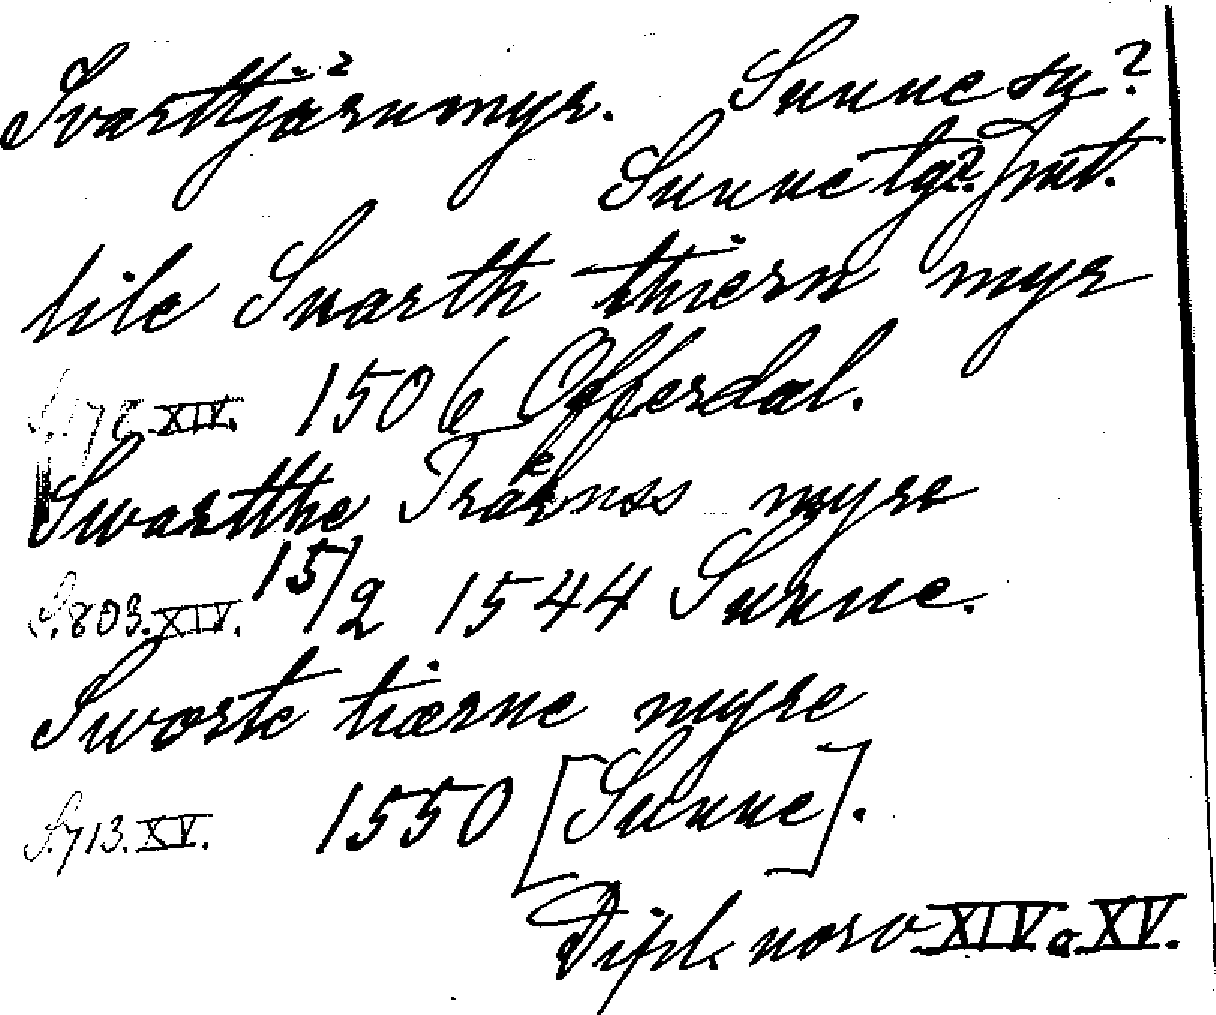 Svarttjärnmyr. Sunne sn?
Sunne tg? Jmt.
tile Suarth thiern myr
XIV. 1506 Offerdal.
Swartthe Träkness myre
S. 803. XIV. 15/2 1544 Sunne.
Sworte tiærne myre
S. 713. XV. 1550 [Sunne].
Dipl. norv XIV o XV.